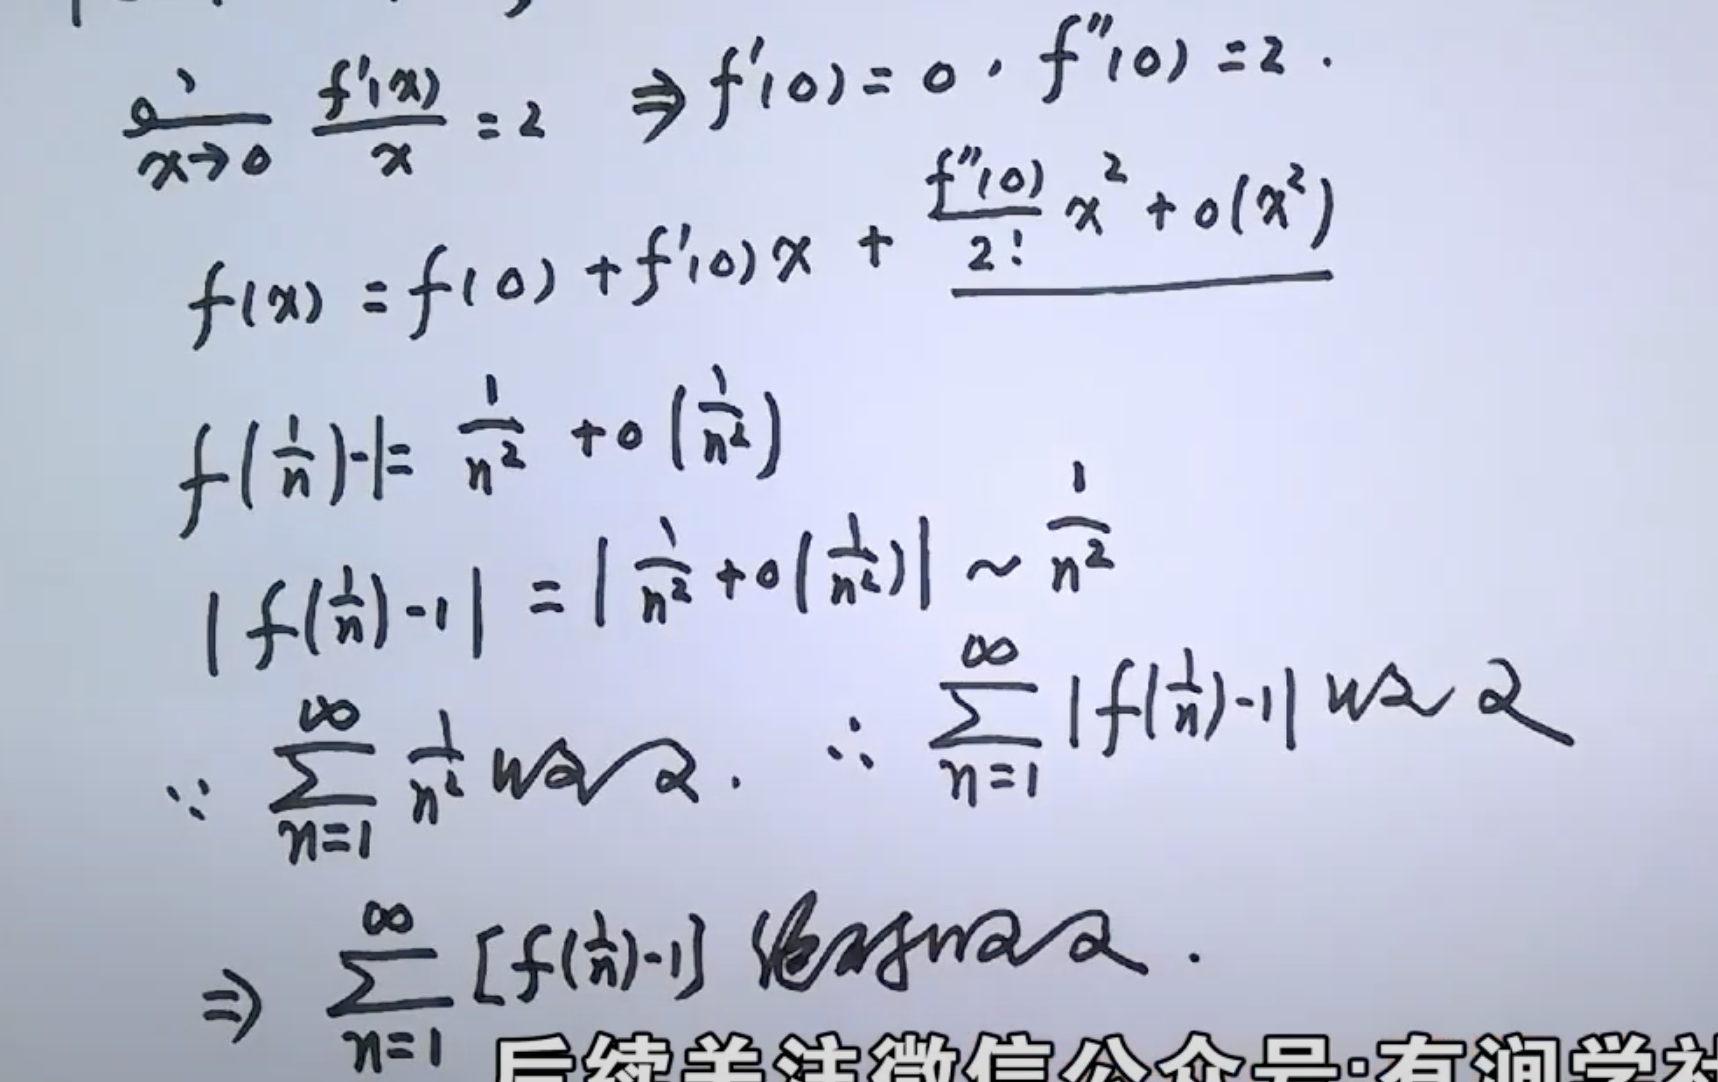 lim x→0 f'(x)/x = 2 ⇒ f'(0) = 0, f''(0) = 2.
f(x) = f(0) + f'(0)x + f''(0)/2! x² + o(x²)
f(1/n) - 1 = 1/n² + o(1/n²)
|f(1/n) - 1| = |1/n² + o(1/n²)| ~ 1/n²
∵ ∑_{n=1}^{∞} 1/n² 收敛. ∴ ∑_{n=1}^{∞} |f(1/n) - 1| 收敛
⇒ ∑_{n=1}^{∞} [f(1/n) - 1] 绝对收敛.
后续关注微信公众号:有润学社